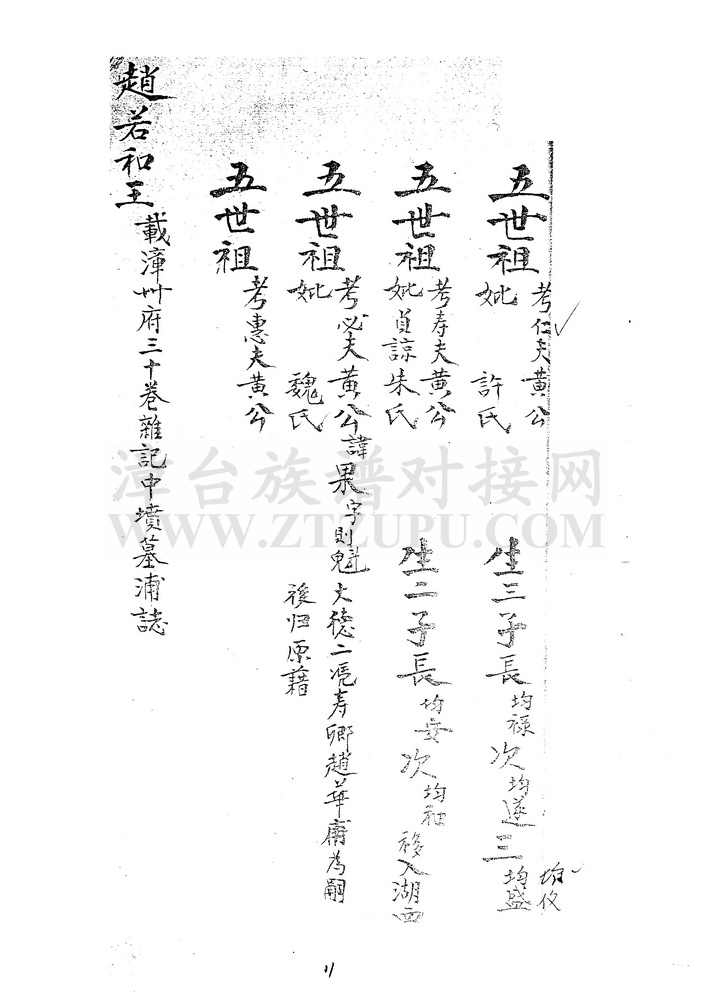 五世祖
考仁夫黄公
妣 許氏
生三子長均禄次均遂三均盛
均攸
五世祖
考寿夫黄公
妣貞諒朱氏
生二子長均安次均袖移入湖西
五世祖
考必夫黄公諱果字則魁大德二凭寿卿趙華甫為嗣
妣 魏氏
後归原藉
五世祖
考惠夫黄公
趙若和王
載漳州府三十卷雜記中墳墓浦誌
漳台族谱对接网
WWW.ZTZUPU.COM
11